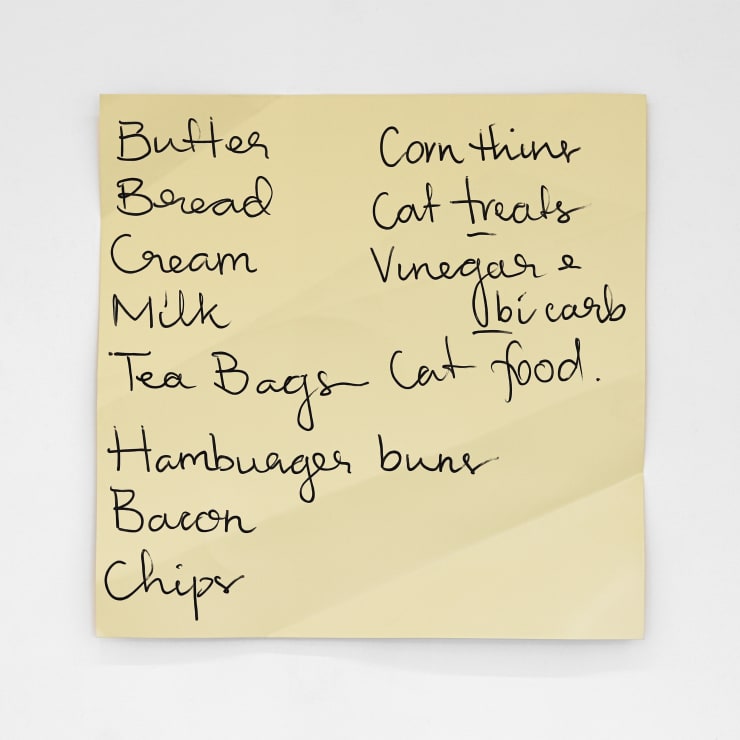 Butter
Bread
Cream
Milk
Tea Bags
Hamburger buns
Bacon
Chips
Corn thins
Cat treats
Vinegar &
bi carb
Cat food.